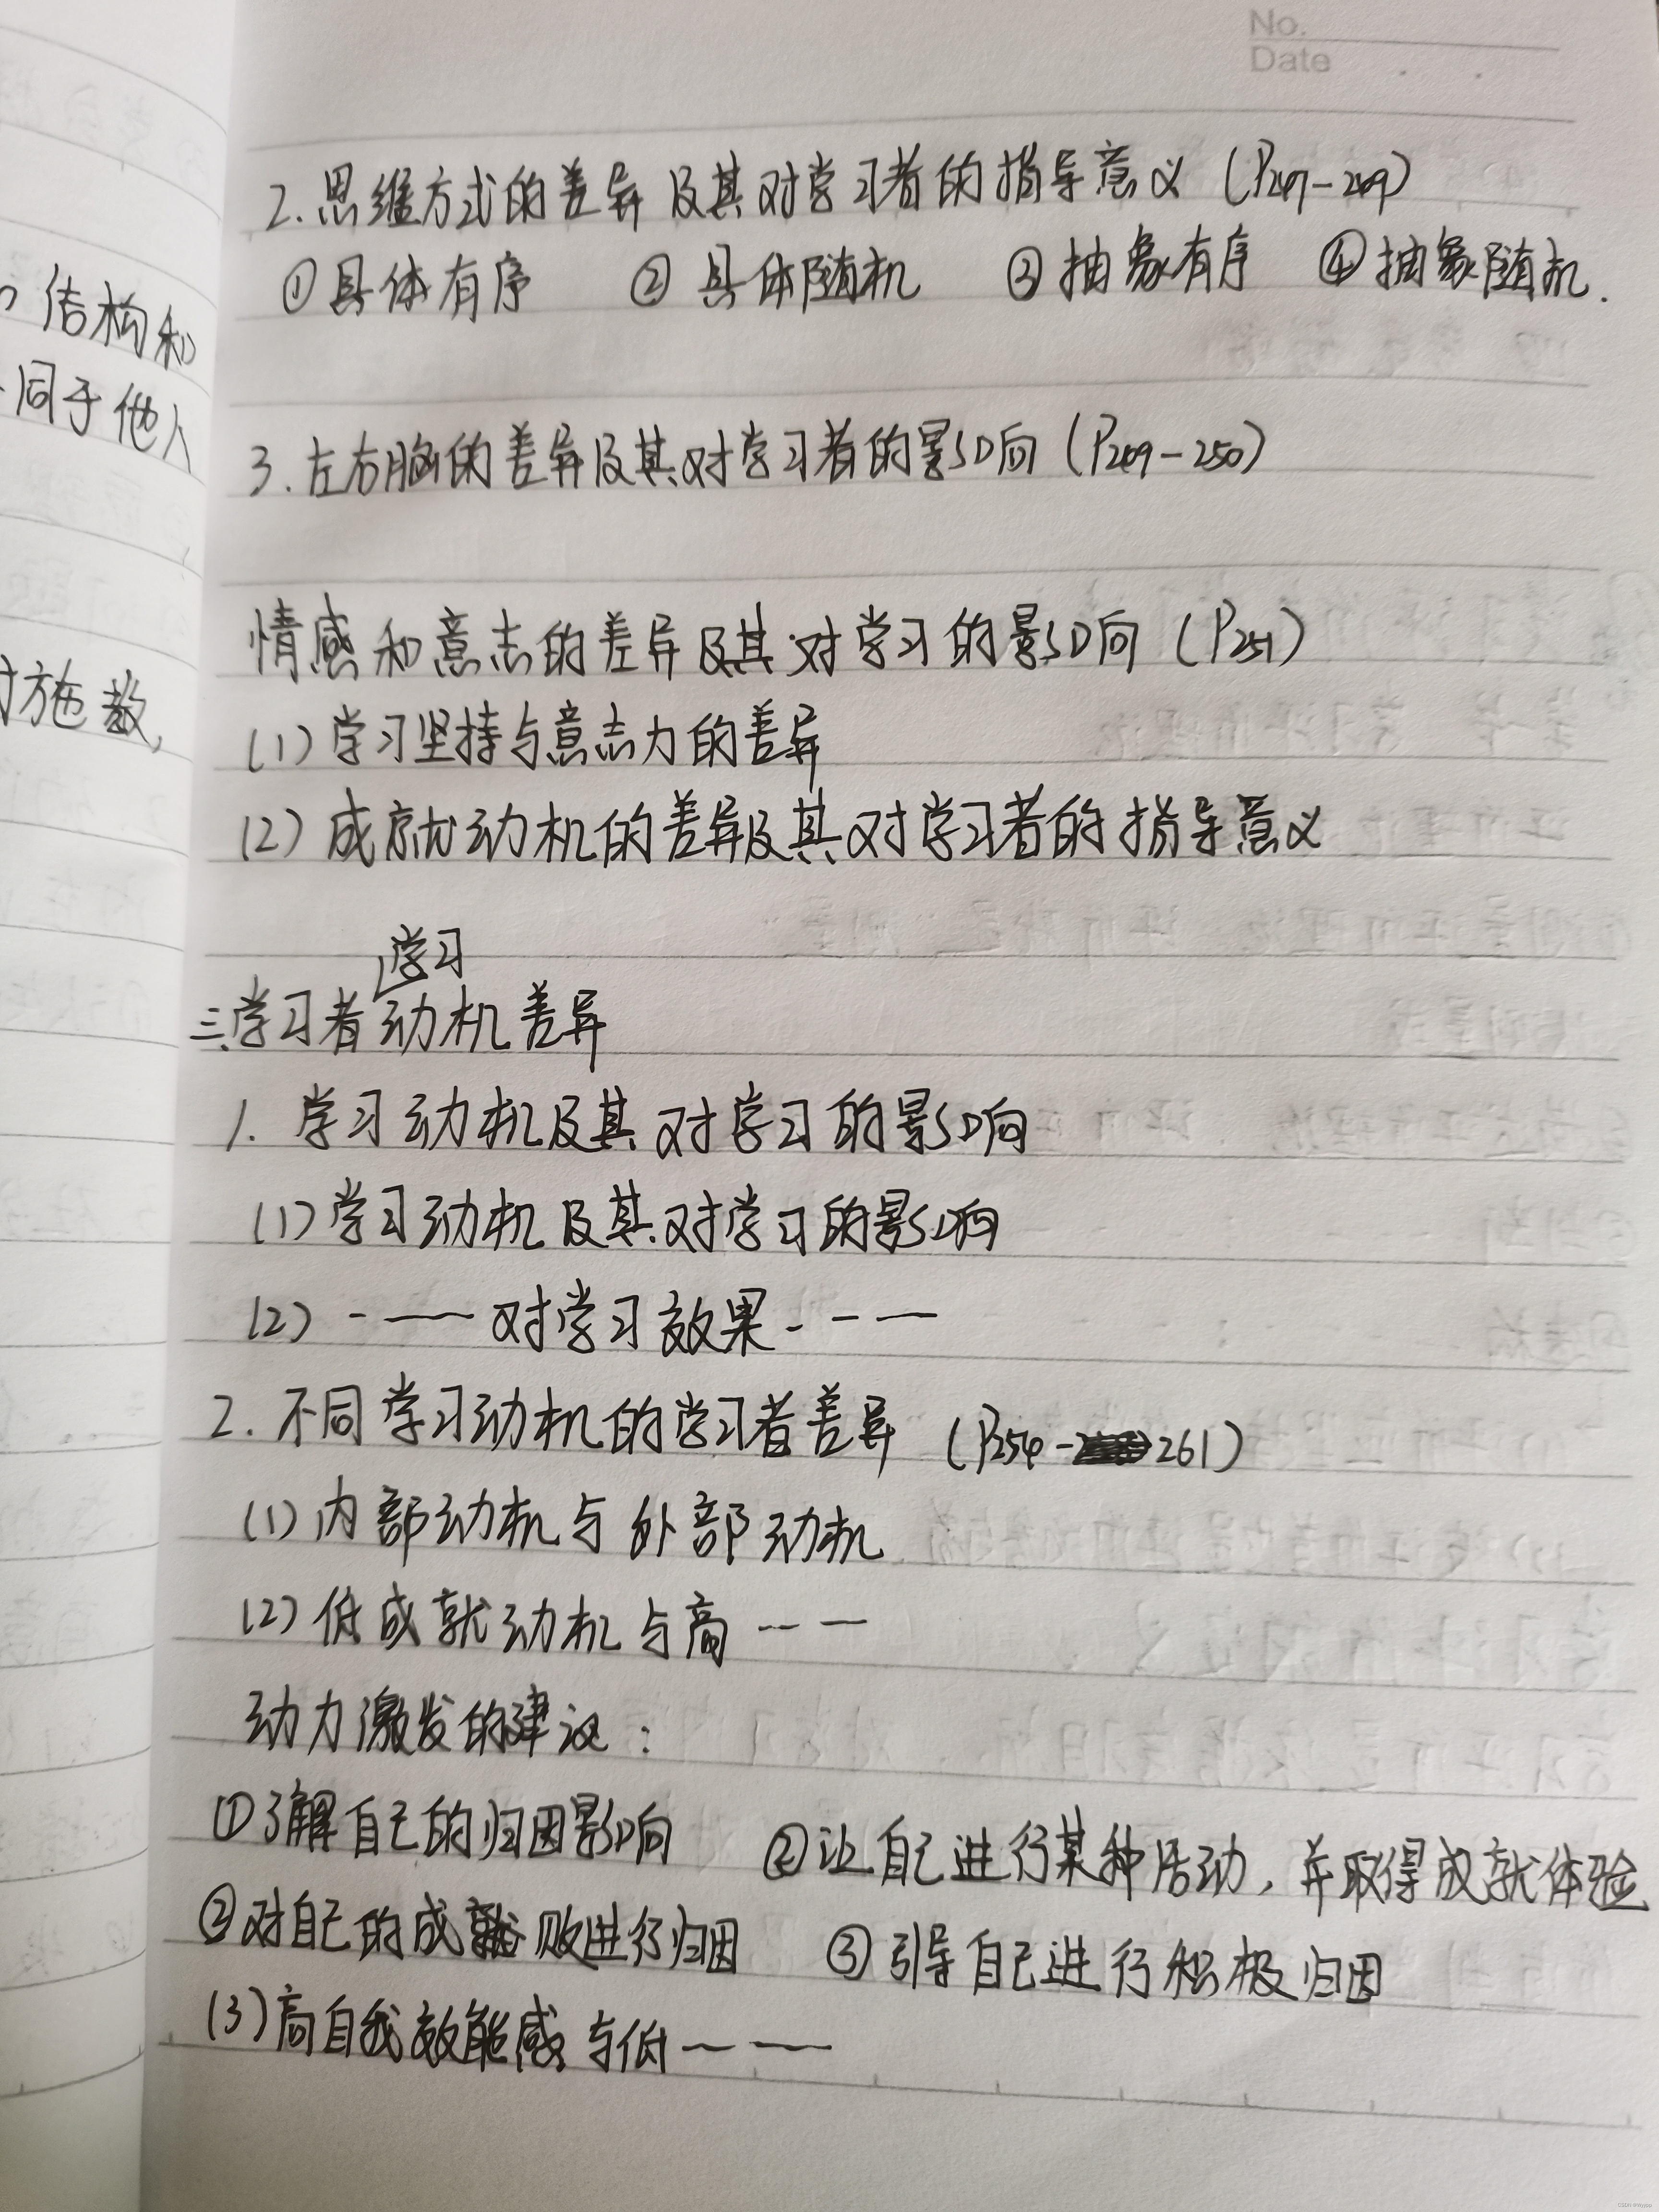 No.
Date
结构和
同于他人
施教,
2.思维方式的差异及其对学习者的指导意义(P247-249)
①具体有序 ②具体随机 ③抽象有序 ④抽象随机.
3.左右脑的差异及其对学习者的影响(P249-250)
情感和意志的差异及其对学习的影响(P251)
(1)学习坚持与意志力的差异
(2)成就动机的差异及其对学习者的指导意义
学习
三.学习者动机差异
1.学习动机及其对学习的影响
(1)学习动机及其对学习的影响
(2)-——对学习效果---
2.不同学习动机的学习者差异(P254-261)
(1)内部动机与外部动机
(2)低成就动机与高---
动力激发的建议:
①了解自己的归因影响 ②让自己进行某种活动,并取得成就体验
②对自己的成败进行归因 ③引导自己进行积极归因
(3)高自我效能感与低——